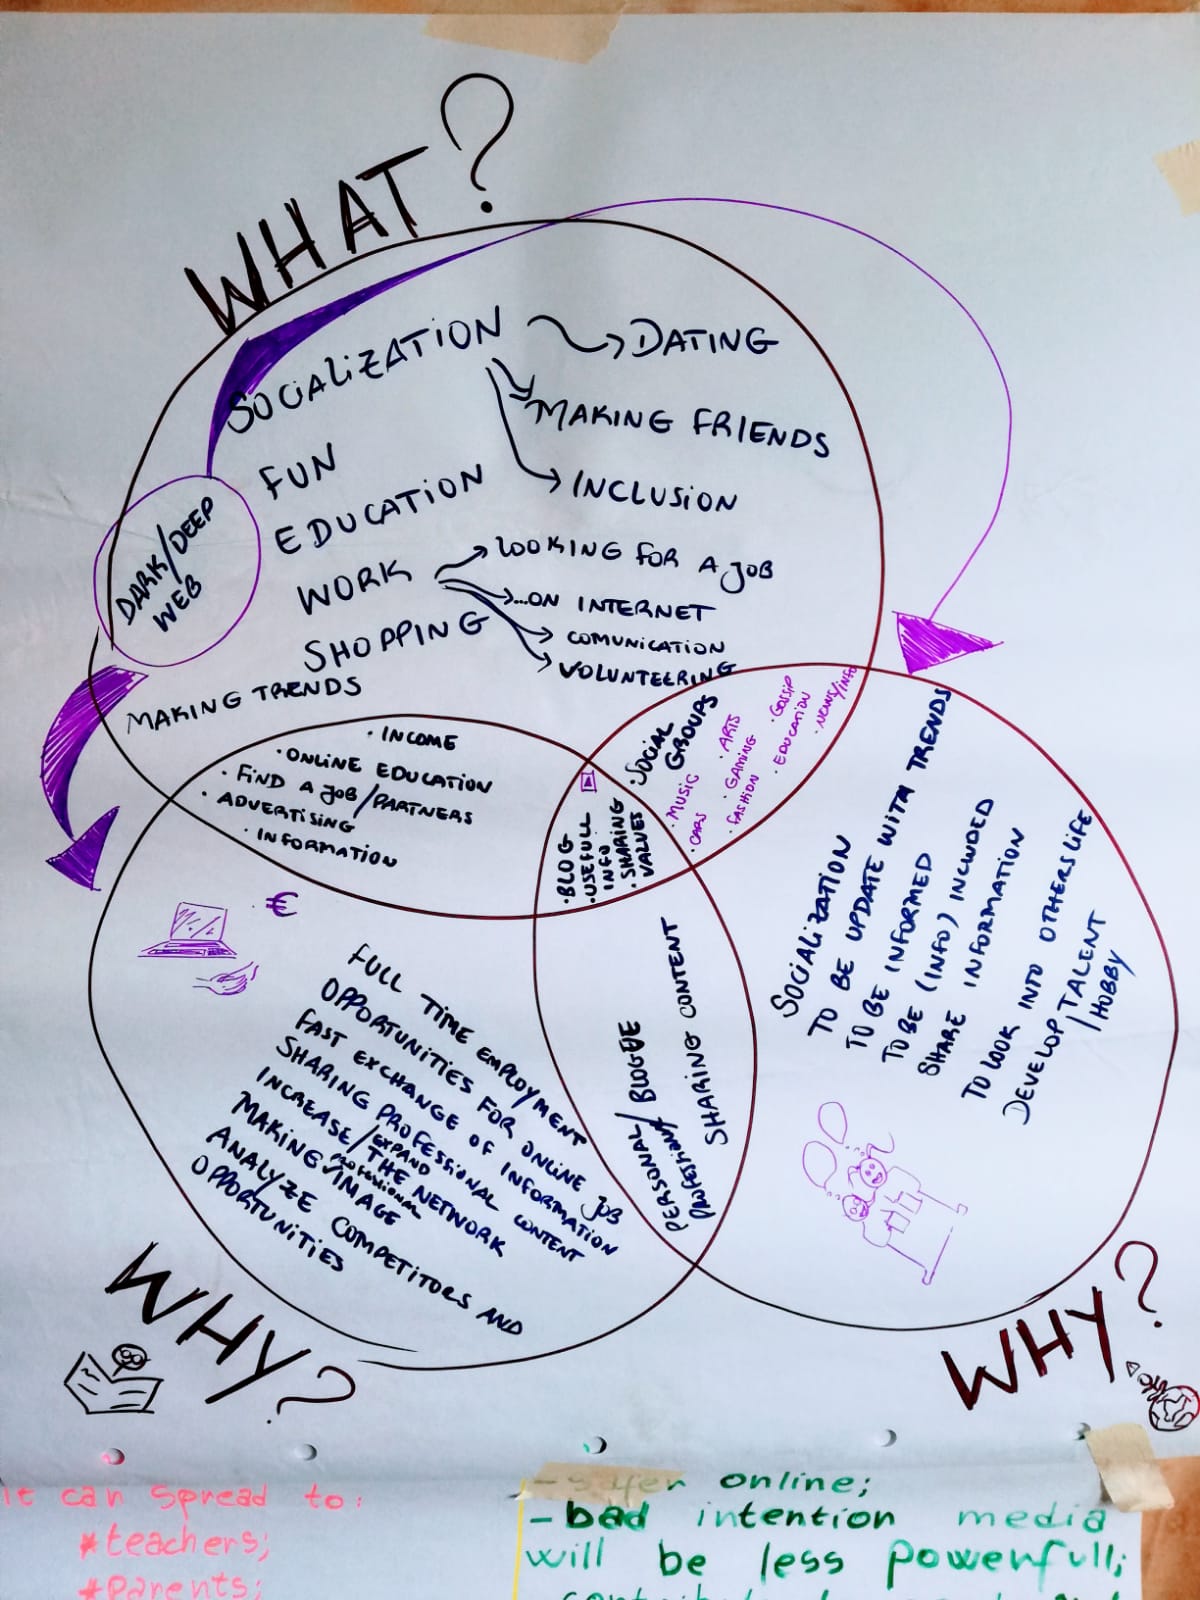 WHAT?
SOCIALIZATION
DATING
MAKING FRIENDS
INCLUSION
FUN
EDUCATION
WORK
LOOKING FOR A JOB
...ON INTERNET
COMUNICATION
VOLUNTEERING
SHOPPING
MAKING TRENDS
DARK/DEEP
WEB
· INCOME
· ONLINE EDUCATION
· FIND A JOB/PARTNERS
· ADVERTISING
· INFORMATION
· SOCIAL
GROUPS
· MUSIC
· CARS
· ARTS
· GAMING
· FASHION
· GOSSIP
· EDUCATION
· NEWS/INFO
· BLOG
· USEFULL
INFO
· SHARING
VALUES
SOCIALIZATION
TO BE UPDATE WITH TRENDS
TO BE INFORMED
TO BE (INFO) INCLUDED
SHARE INFORMATION
TO LOOK INTO OTHERS LIFE
DEVELOP TALENT
/HOBBY
€
FULL TIME EMPLOYMENT
OPPORTUNITIES FOR ONLINE JOB
FAST EXCHANGE OF INFORMATION
SHARING PROFESSIONAL CONTENT
INCREASE/EXPAND THE NETWORK
MAKING PROFESSIONAL IMAGE
ANALYZE COMPETITORS AND
OPPORTUNITIES
PERSONAL/
BLOG
SHARING CONTENT
WHY?
WHY?
it can spread to:
*teachers;
*parents;
online;
- bad intention media
will be less powerfull;